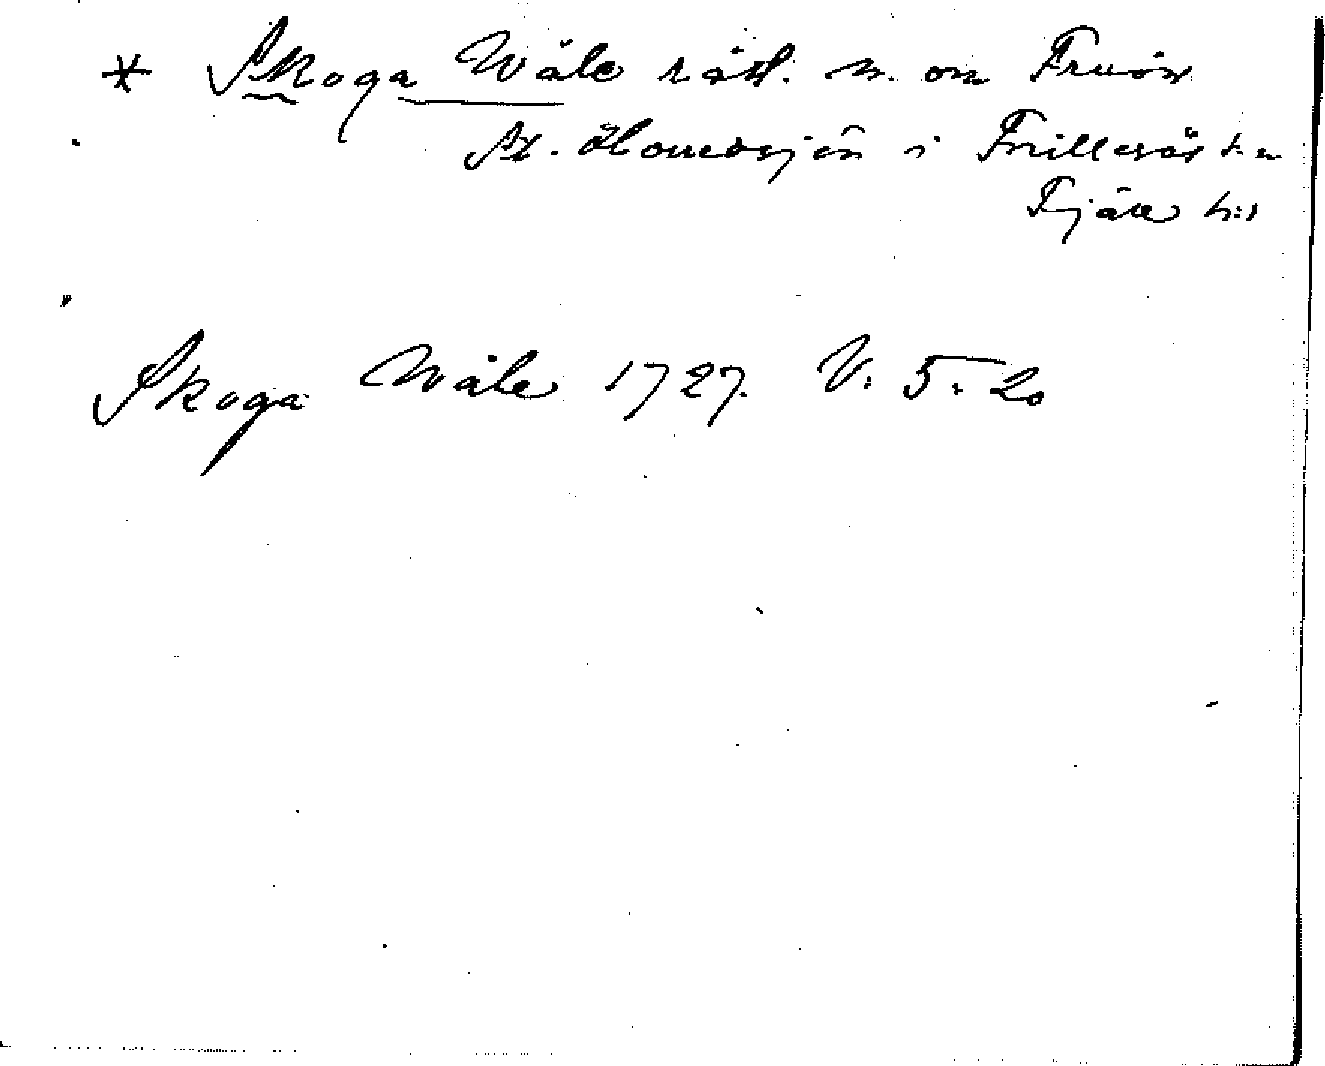 * Skoga Wåle rösl. n. om Fruön
St. Hornsjön i Frillesås s:n
Fjäre h:d
Skoga Wåle 1727. V: 5: 20